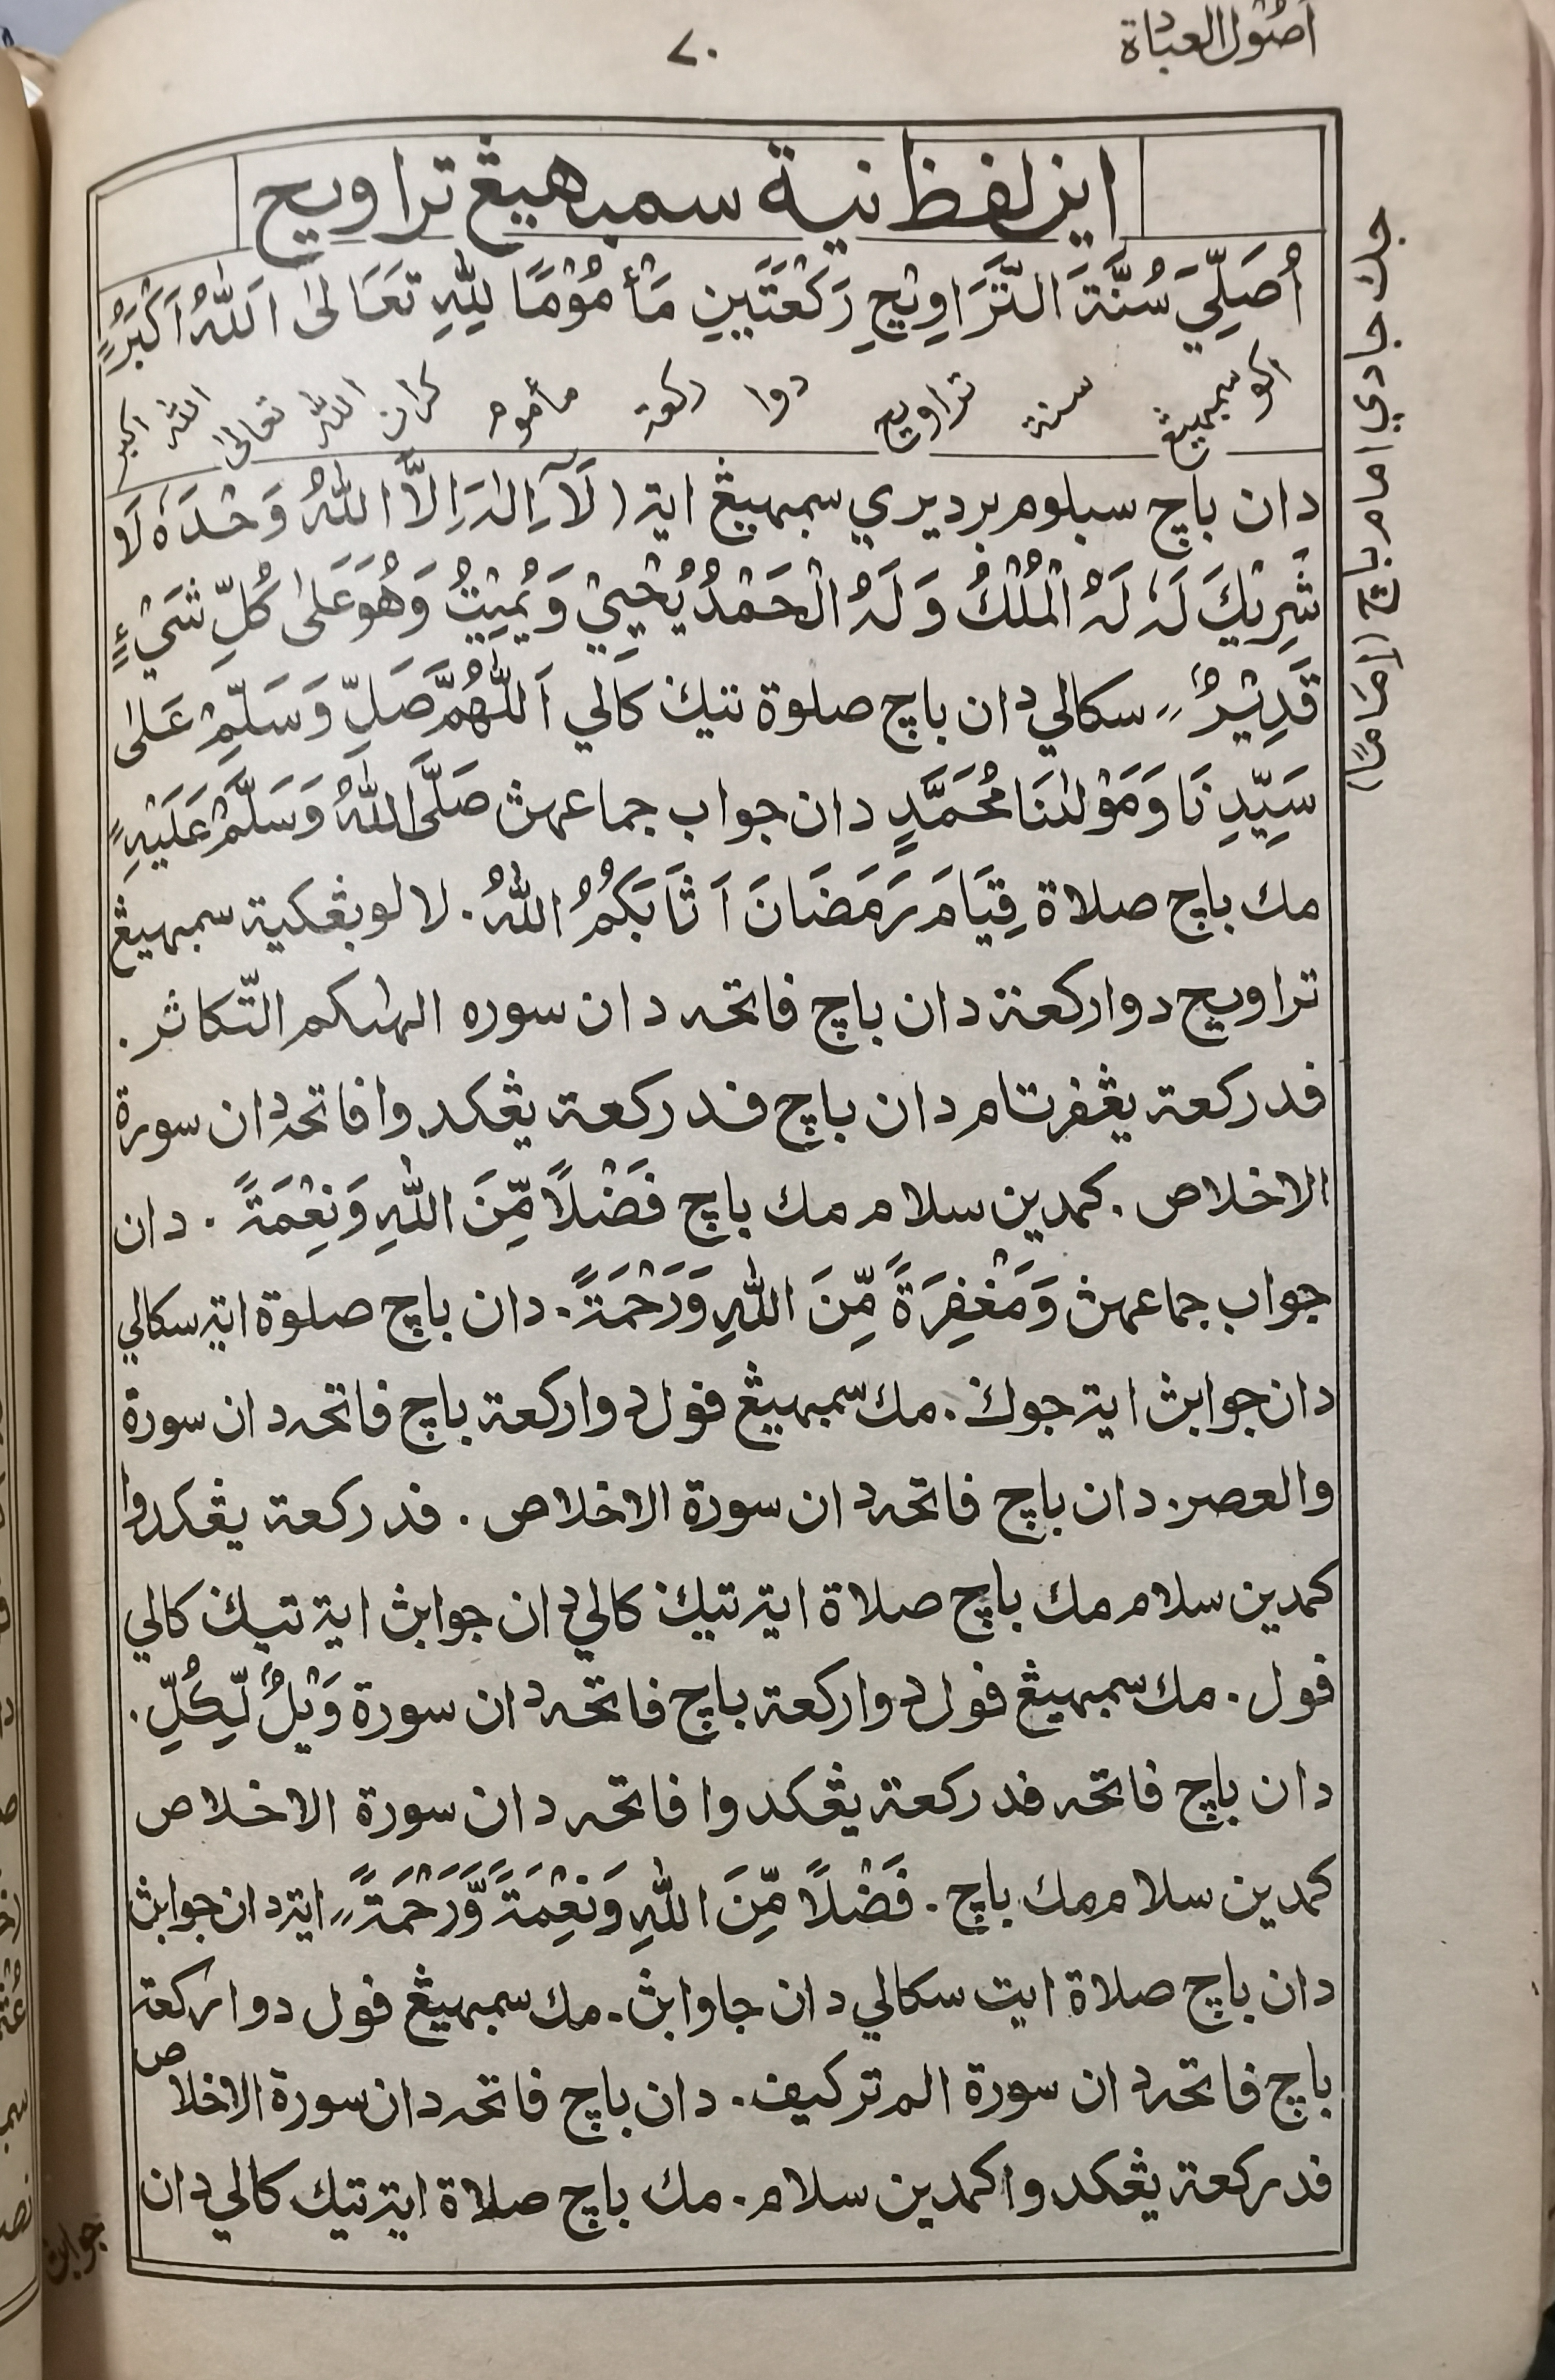 اصول العبادة
٧٠
اين لفظ نية سمبهيڠ تراويح
اُصَلِّيْ سُنَّةَ التَّرَاوِيْحِ رَكْعَتَيْنِ مَأْمُوْمًا لِلّٰهِ تَعَالىٰ اَللّٰهُ اَكْبَرُ
اكو سمبهيڠ سنة تراويح دوا ركعة مأموم كران اللّٰه تعالىٰ اللّٰه اكبر
دان باچ سبلوم برديري سمبهيڠ ايت (لَآ اِلٰهَ اِلَّا اللّٰهُ وَحْدَهٗ لَا
شَرِيْكَ لَهٗ لَهُ الْمُلْكُ وَلَهُ الْحَمْدُ يُحْيِيْ وَيُمِيْتُ وَهُوَ عَلىٰ كُلِّ شَيْءٍ
قَدِيْرٌ، سكالي دان باچ صلوة تيك كالي اَللّٰهُمَّ صَلِّ وَسَلِّمْ عَلىٰ
سَيِّدِنَا وَمَوْلٰنَا مُحَمَّدٍ دان جواب جماعهڽ صَلَّى اللّٰهُ وَسَلَّمَ عَلَيْهِ
مك باچ صلاة قِيَامَ رَمَضَانَ اَثَابَكُمُ اللّٰهُ. لالو بڠكية سمبهيڠ
تراويح دوا ركعة دان باچ فاتحه دان سوره الهٰىكم التّكاثر.
فد ركعة يڠفرتام دان باچ فد ركعة يڠكدوا فاتحه دان سورة
الاخلاص. كمدين سلام مك باچ فَضْلًا مِّنَ اللّٰهِ وَنِعْمَةً. دان
جواب جماعهڽ وَمَغْفِرَةً مِّنَ اللّٰهِ وَرَحْمَةً. دان باچ صلوة ايت سكالي
دان جوابڽ ايت جوك. مك سمبهيڠ فول دوا ركعة باچ فاتحه دان سورة
والعصر. دان باچ فاتحه دان سورة الاخلاص. فد ركعة يڠكدوا
كمدين سلام مك باچ صلاة ايت تيك كالي دان جوابڽ ايت تيك كالي
فول. مك سمبهيڠ فول دوا ركعة باچ فاتحه دان سورة وَيْلٌ لِّكُلِّ.
دان باچ فاتحه فد ركعة يڠكدوا فاتحه دان سورة الاخلاص
كمدين سلام مك باچ. فَضْلًا مِّنَ اللّٰهِ وَنِعْمَةً وَّرَحْمَةً، ايت دان جوابڽ
دان باچ صلاة ايت سكالي دان جاوابڽ. مك سمبهيڠ فول دوا ركعة
باچ فاتحه دان سورة الم تركيف. دان باچ فاتحه دان سورة الاخلاص
فد ركعة يڠكدوا كمدين سلام. مك باچ صلاة ايت تيك كالي دان
جوابڽ
جك جادي امام باچ (اِمَامًا)